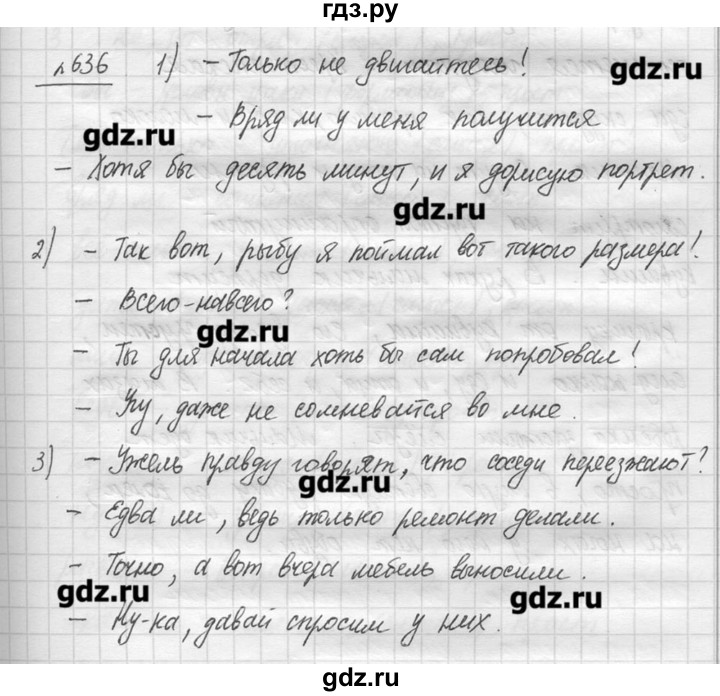 гдз.ру
№636 1) – Только не двигайтесь!
gdz.ru
– Вряд ли у меня получится
gdz.ru
– Хотя бы десять минут, и я дорисую портрет.
gdz.ru
2) – Так вот, рыбу я поймал вот такого размера!
– Всего-навсего?
gdz.ru
– Ты для начала хоть бы сам попробовал!
– Ну, даже не сомневайся во мне.
3) – Ужель правду говорят, что соседи переезжают?
gdz.ru
– Едва ли, ведь только ремонт делали.
– Точно, а вот вчера мебель выносили.
gdz.ru gdz.ru
– Ну-ка, давай спросим у них.
gdz.ru